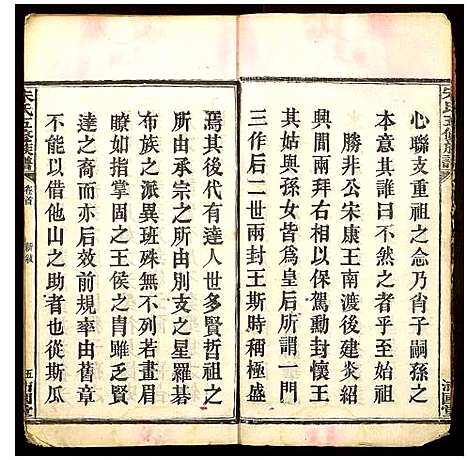 心聯支重祖之念乃肖子嗣孫之
本意其誰曰不然之者乎至小
勝非公宋康王南渡後建炎紹
興間兩拜右相以保駕勳封懷王
又與孫女皆為皇后所謂一門
三作后二世兩封王斯時稱極盛
焉其後代有達人世多賢哲祖之
所由承宗之所由別支之星羅碁
布族之派異班殊無不列若畫眉
瞭如指掌固之王侯之冑雖乏賢
達之裔而亦后效前規率由舊章
能不以借他山之助者也從斯瓜
宋氏五修族譜
卷首
新敍
五